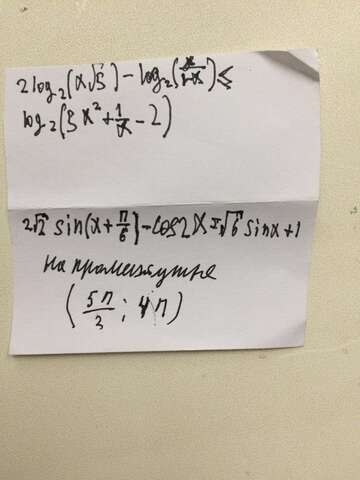 2log₂(x√5) − log₂(x/(1−x)) ≤
log₂(5x² + 1/x − 2)
2√2 sin(x + π/6) − cos2x = √6 sinx + 1
на промежутке
(5π/3; 4π)